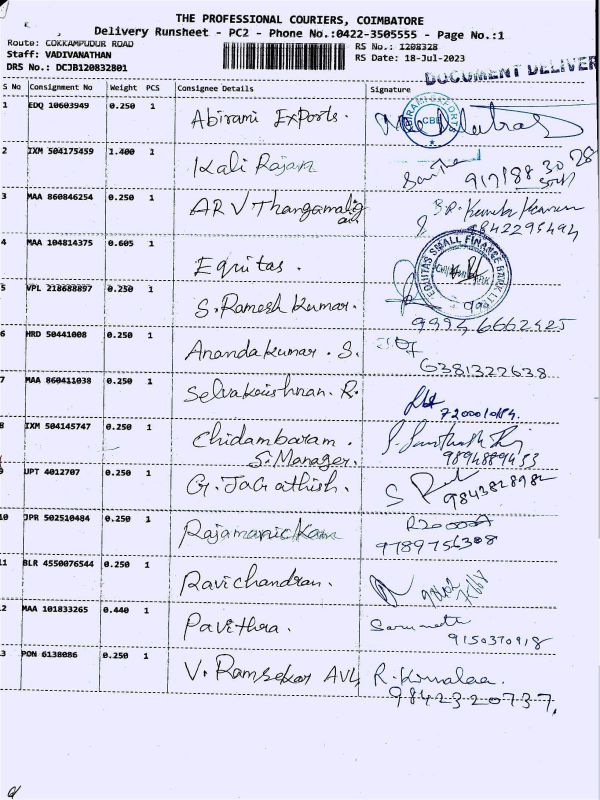 THE PROFESSIONAL COURIERS, COIMBATORE
Delivery Runsheet - PC2 - Phone No.:0422-3505555 - Page No.:1
Route: COKKAMPUDUR ROAD
Staff: VADIVANATHAN
DRS No.: DCJB120832801
RS No.: 1208328
RS Date: 18-Jul-2023
DOCUMENT DELIVER
S No Consignment No Weight PCS Consignee Details Signature
1 EDQ 10603949 0.250 1 Abirami Exports.
CBE
2 IXM 504175459 1.400 1 Kali Rajan
3 MAA 860846254 0.250 1 ARV Thangamalig
9842295494
4 MAA 104814375 0.605 1 Equitas.
EQUITAS SMALL FINANCE BANK LTD
5 VPL 218688897 0.250 1 S. Ramesh Kumar.
99946662425
6 HRD 50441008 0.250 1 Anandakumar. S.
6381322638
7 MAA 860411038 0.250 1 Selvakrishnan. R.
8 IXM 504145747 0.250 1 Chidambaram.
S. Manager.
9894889453
9 UPT 4012707 0.250 1 G. JaGathish.
9843828982
10 JPR 502510484 0.250 1 Rajamanickam
9789756308
11 BLR 4550076544 0.250 1 Ravichandran.
2 MAA 101833265 0.440 1 Pavithra.
9150370918
3 PON 6138086 0.250 1 V. Ramsekar AVL R. Komalaa.
9842320737.